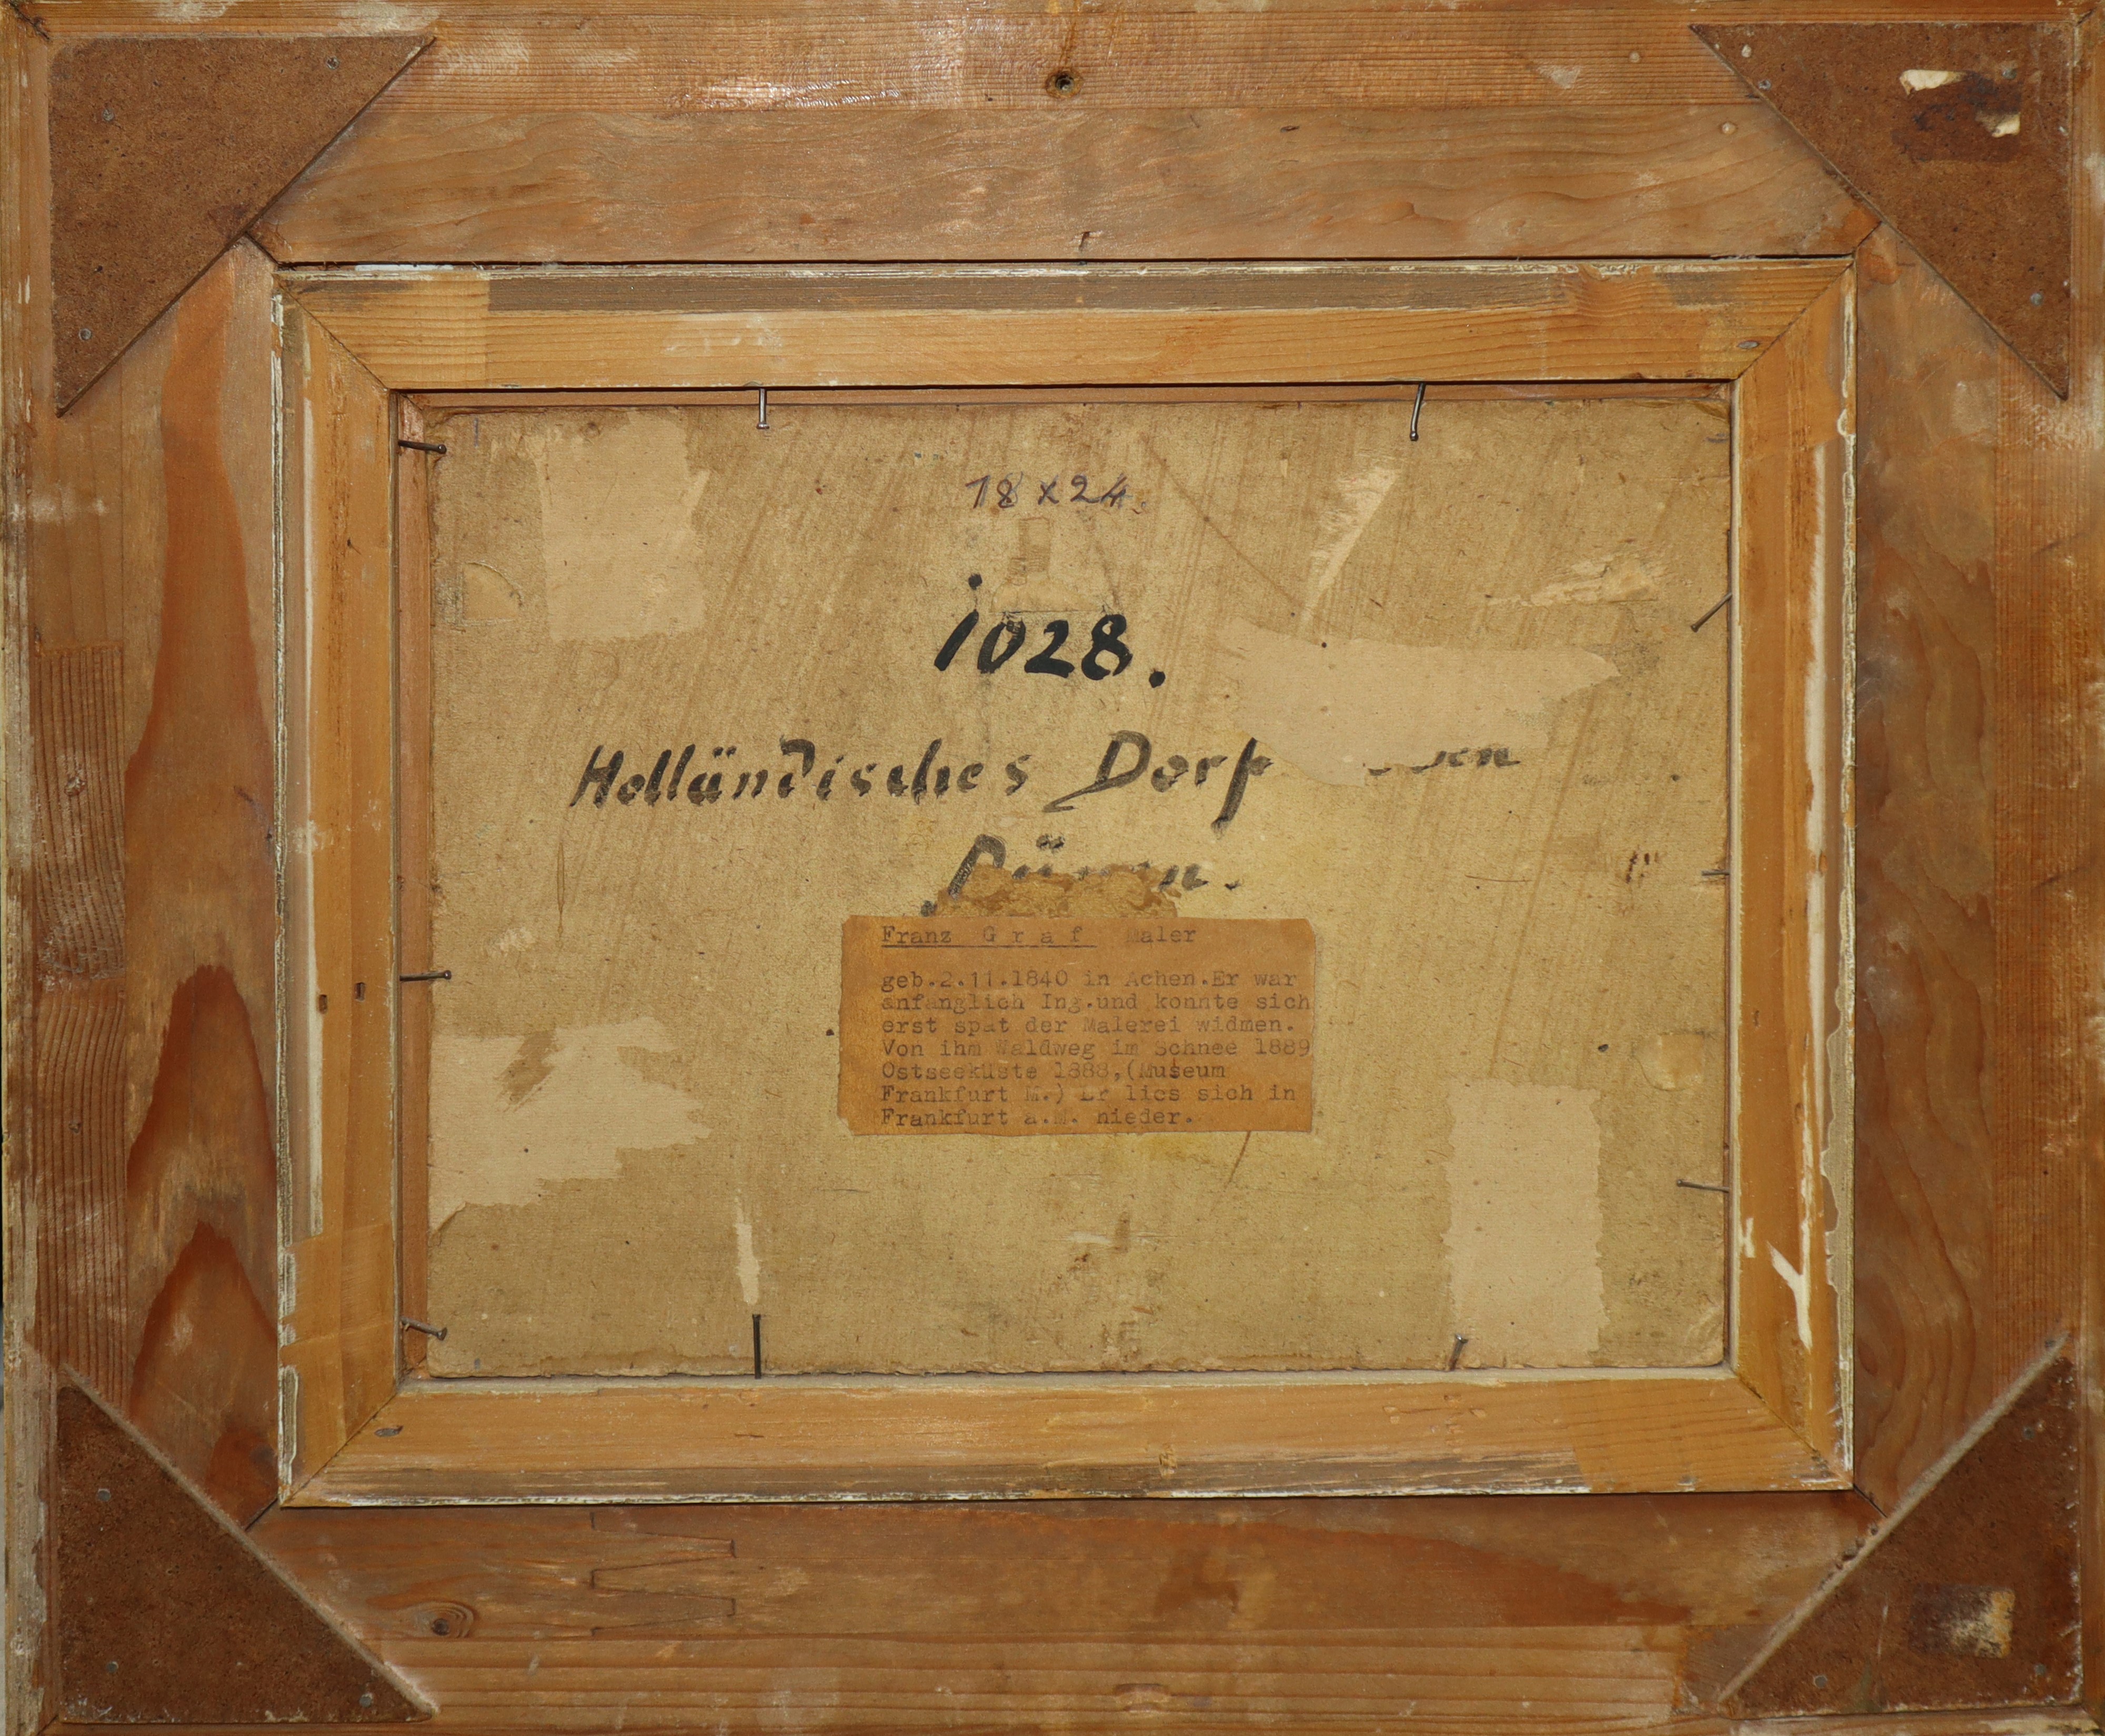 18 x 24.
1028.
Holländisches Dorf
Dünen.
Franz G r a f Maler
geb.2.11.1840 in Achen.Er war
anfanglich Ing.und konnte sich
erst spat der Malerei widmen.
Von ihm Waldweg im Schnee 1889
Ostseeküste 1888,(Museum
Frankfurt M.) Er lies sich in
Frankfurt a.M. nieder.